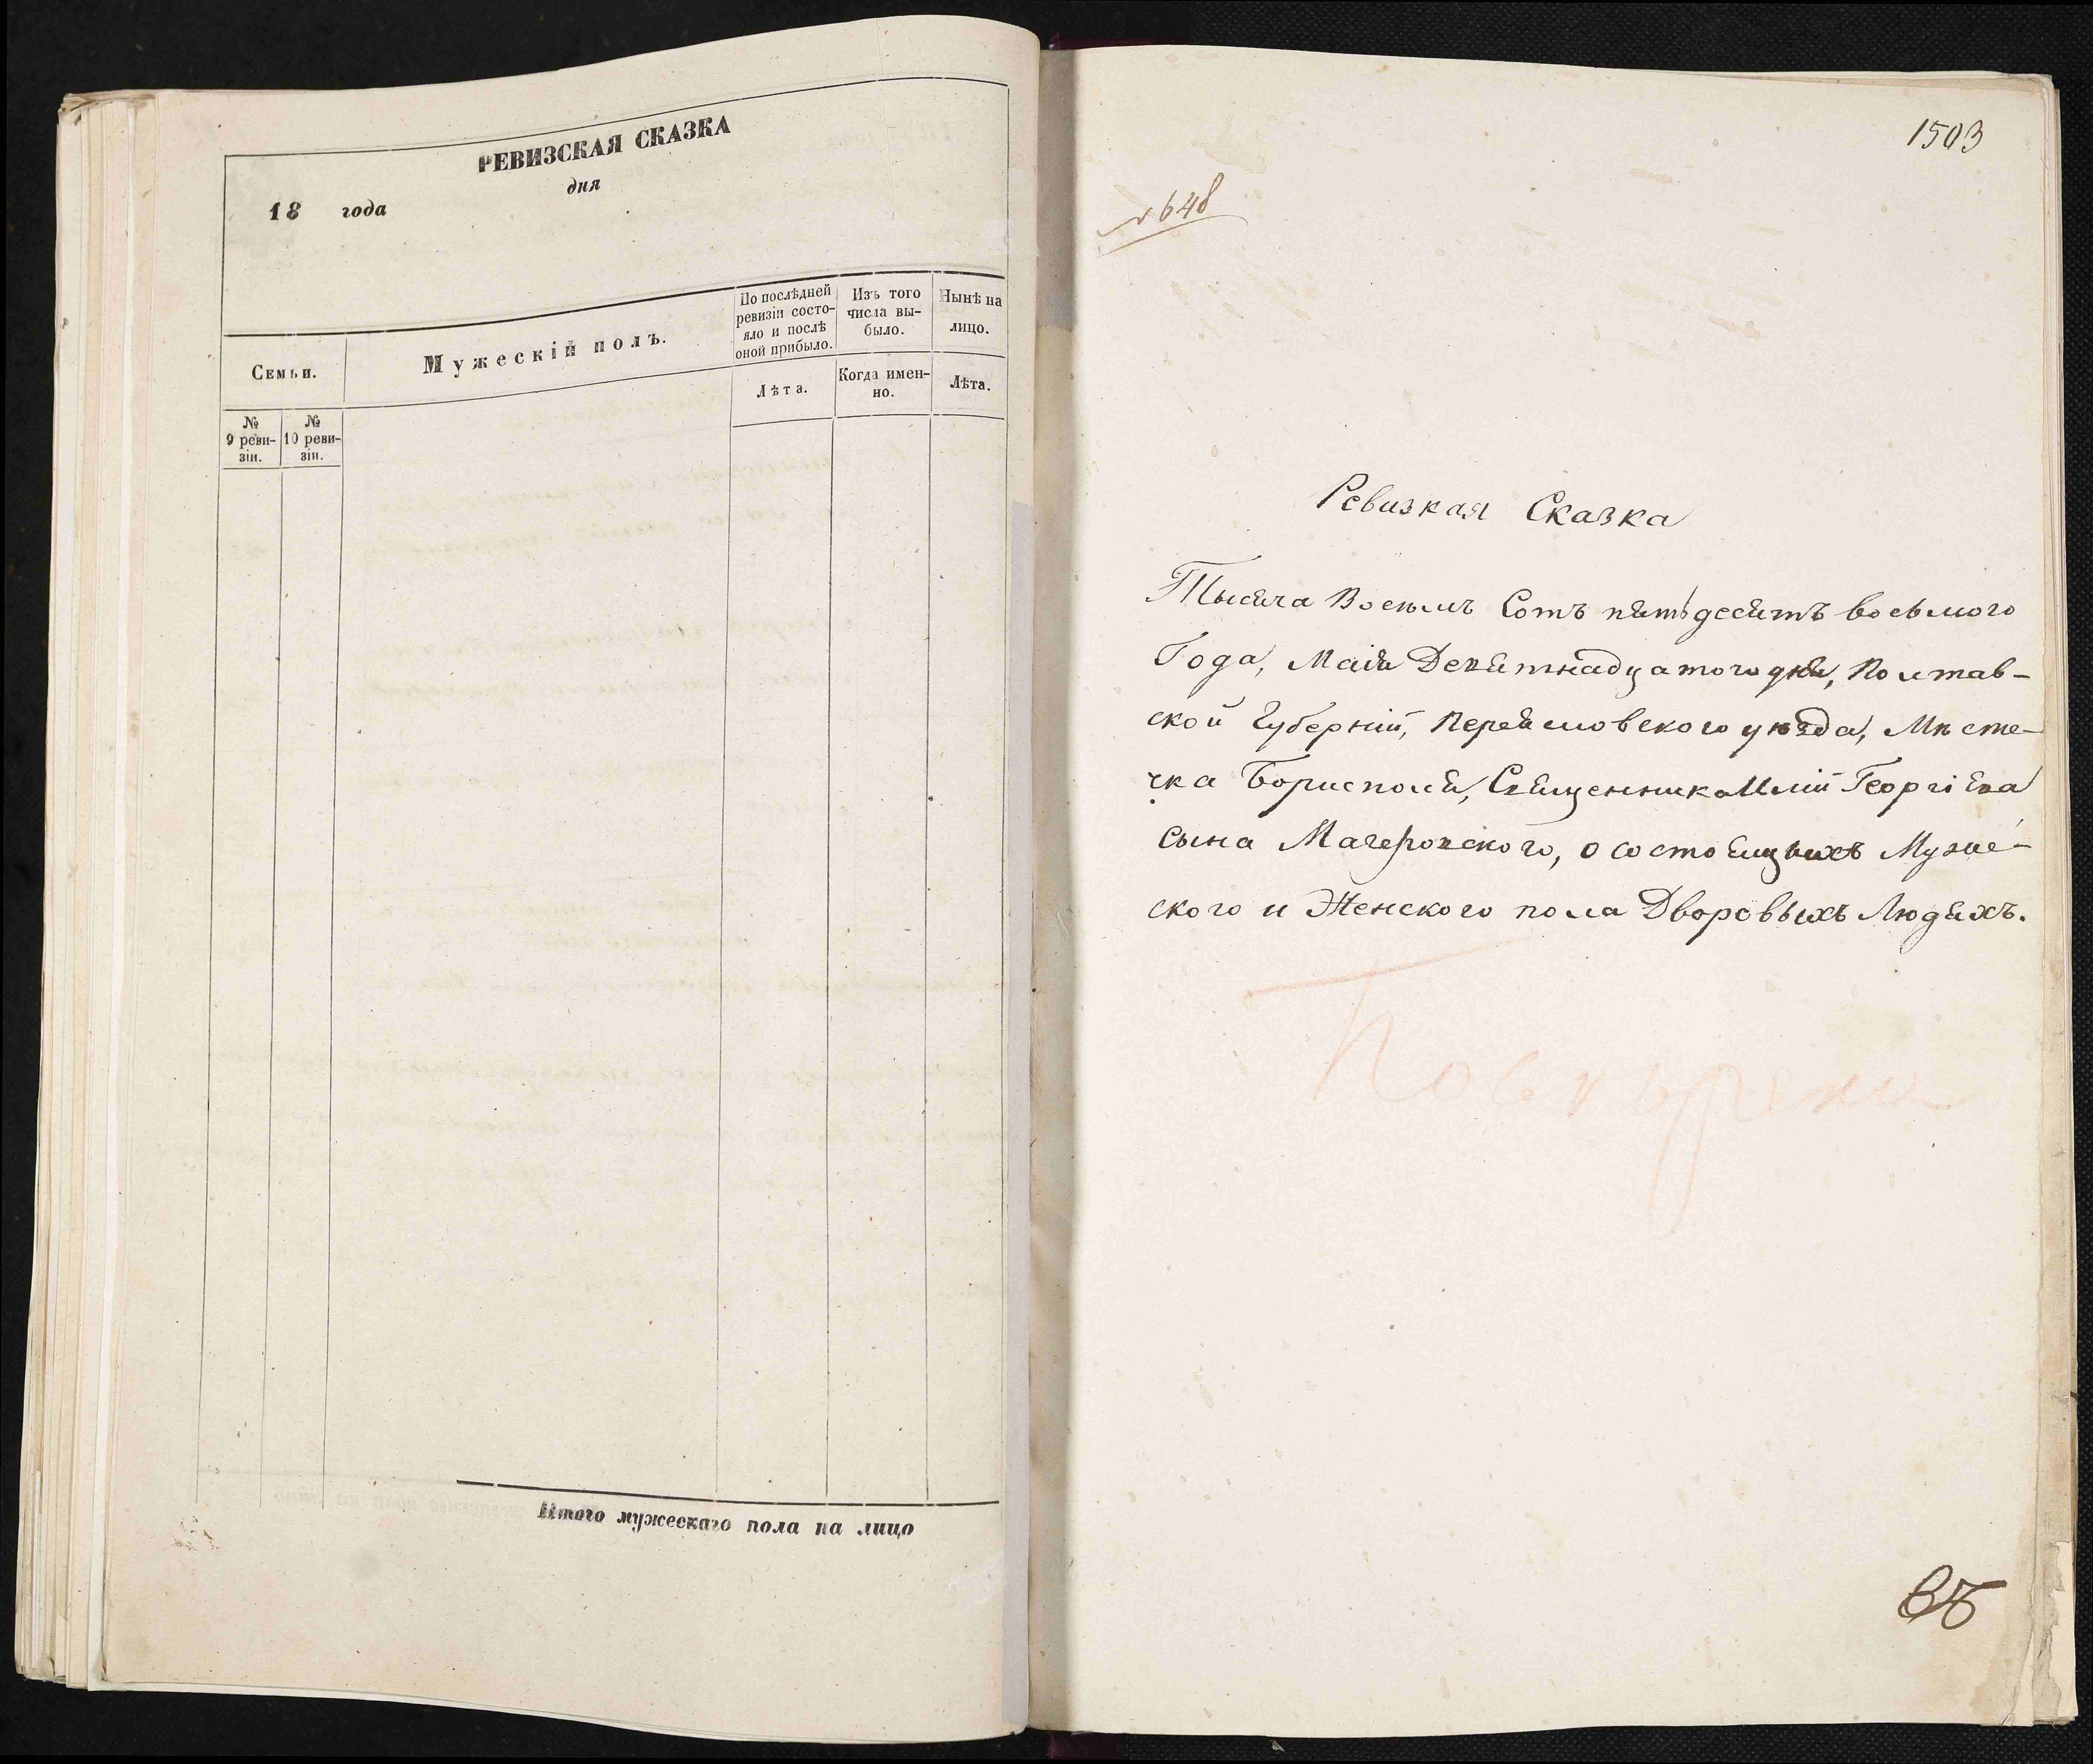 РЕВИЗСКАЯ СКАЗКА
дня
18 года
Семьи.
Мужескій полъ.
По послѣдней ревизіи состо-
яло и послѣ
оной прибыло.
Изъ того
числа вы-
было.
Нынѣ на
лицо.
Лѣта.
Когда имен-
но.
Лѣта.
№
9 реви-
зіи.
№
10 реви-
зіи.
Итого мужескаго пола на лицо
1503
№ 648
Ревизкая Сказка
Тысяча Восемь Сотъ пятьдесятъ восьмого
Года, Мая Девятнадцатого дня, Полтав-
ской Губерніи, Переясловского уѣзда, Мѣсте-
чка Борисполя, Священника Иліи Георгіева
сына Мачеровского, о состоящихъ Муже-
ского и Женского пола Дворовыхъ Людяхъ.